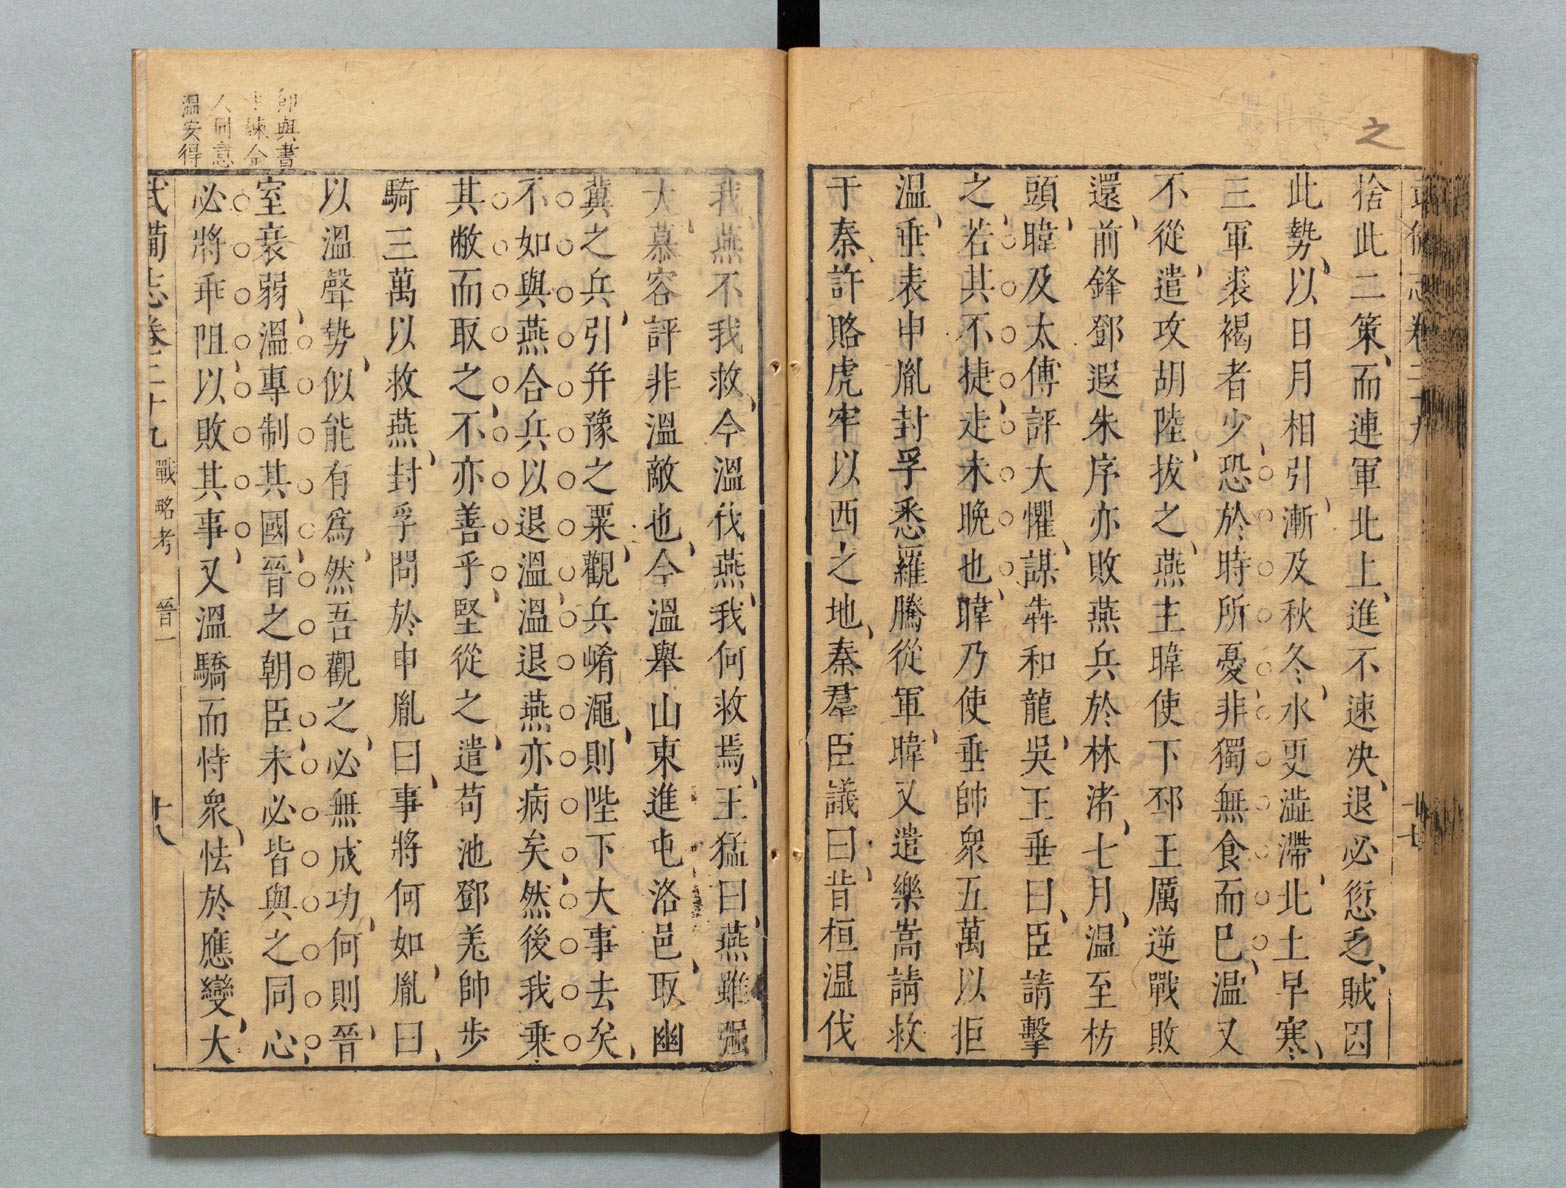 之
武備志卷二十九
十七
捨此二策、而連軍北上、進不速决、退必愆乏、賊因
此勢、以日月相引、漸及秋冬、水更澁滯、北土早寒、
三軍裘褐者少、恐於時所憂非獨無食而已、温又
不從、遣攻胡陸、拔之、燕主暐使下邳王厲逆戰敗
還、前鋒鄧遐朱序亦敗燕兵於林渚、七月、温至枋
頭、暐及太傅評大懼、謀犇和龍、吳王垂曰、臣請擊
之、若其不捷、走未晩也、暐乃使垂帥衆五萬以拒
温、垂表申胤封孚悉羅騰從軍、暐又遣樂嵩請救
于秦、許賂虎牢以西之地、秦羣臣議曰、昔桓温伐
我、燕不我救、今溫伐燕、我何救焉、王猛曰、燕雖强
大、慕容評非溫敵也、今溫舉山東進屯洛邑、取幽
冀之兵、引幷豫之粟、觀兵崤澠、則陛下大事去矣、
不如與燕合兵以退溫、溫退燕亦病矣、然後我乗
其敝而取之、不亦善乎、堅從之、遣苟池鄧羌帥步
騎三萬以救燕、封孚問於申胤曰、事將何如、胤曰、
以溫聲勢、似能有爲、然吾觀之、必無成功、何則、晉
室衰弱、溫專制其國、晉之朝臣、未必皆與之同心、
必將乖阻、以敗其事、又溫驕而恃衆、怯於應變、大
武備志卷二十九 戰略考 晉一 十八
卽與書
諫全
人何意
溫安得